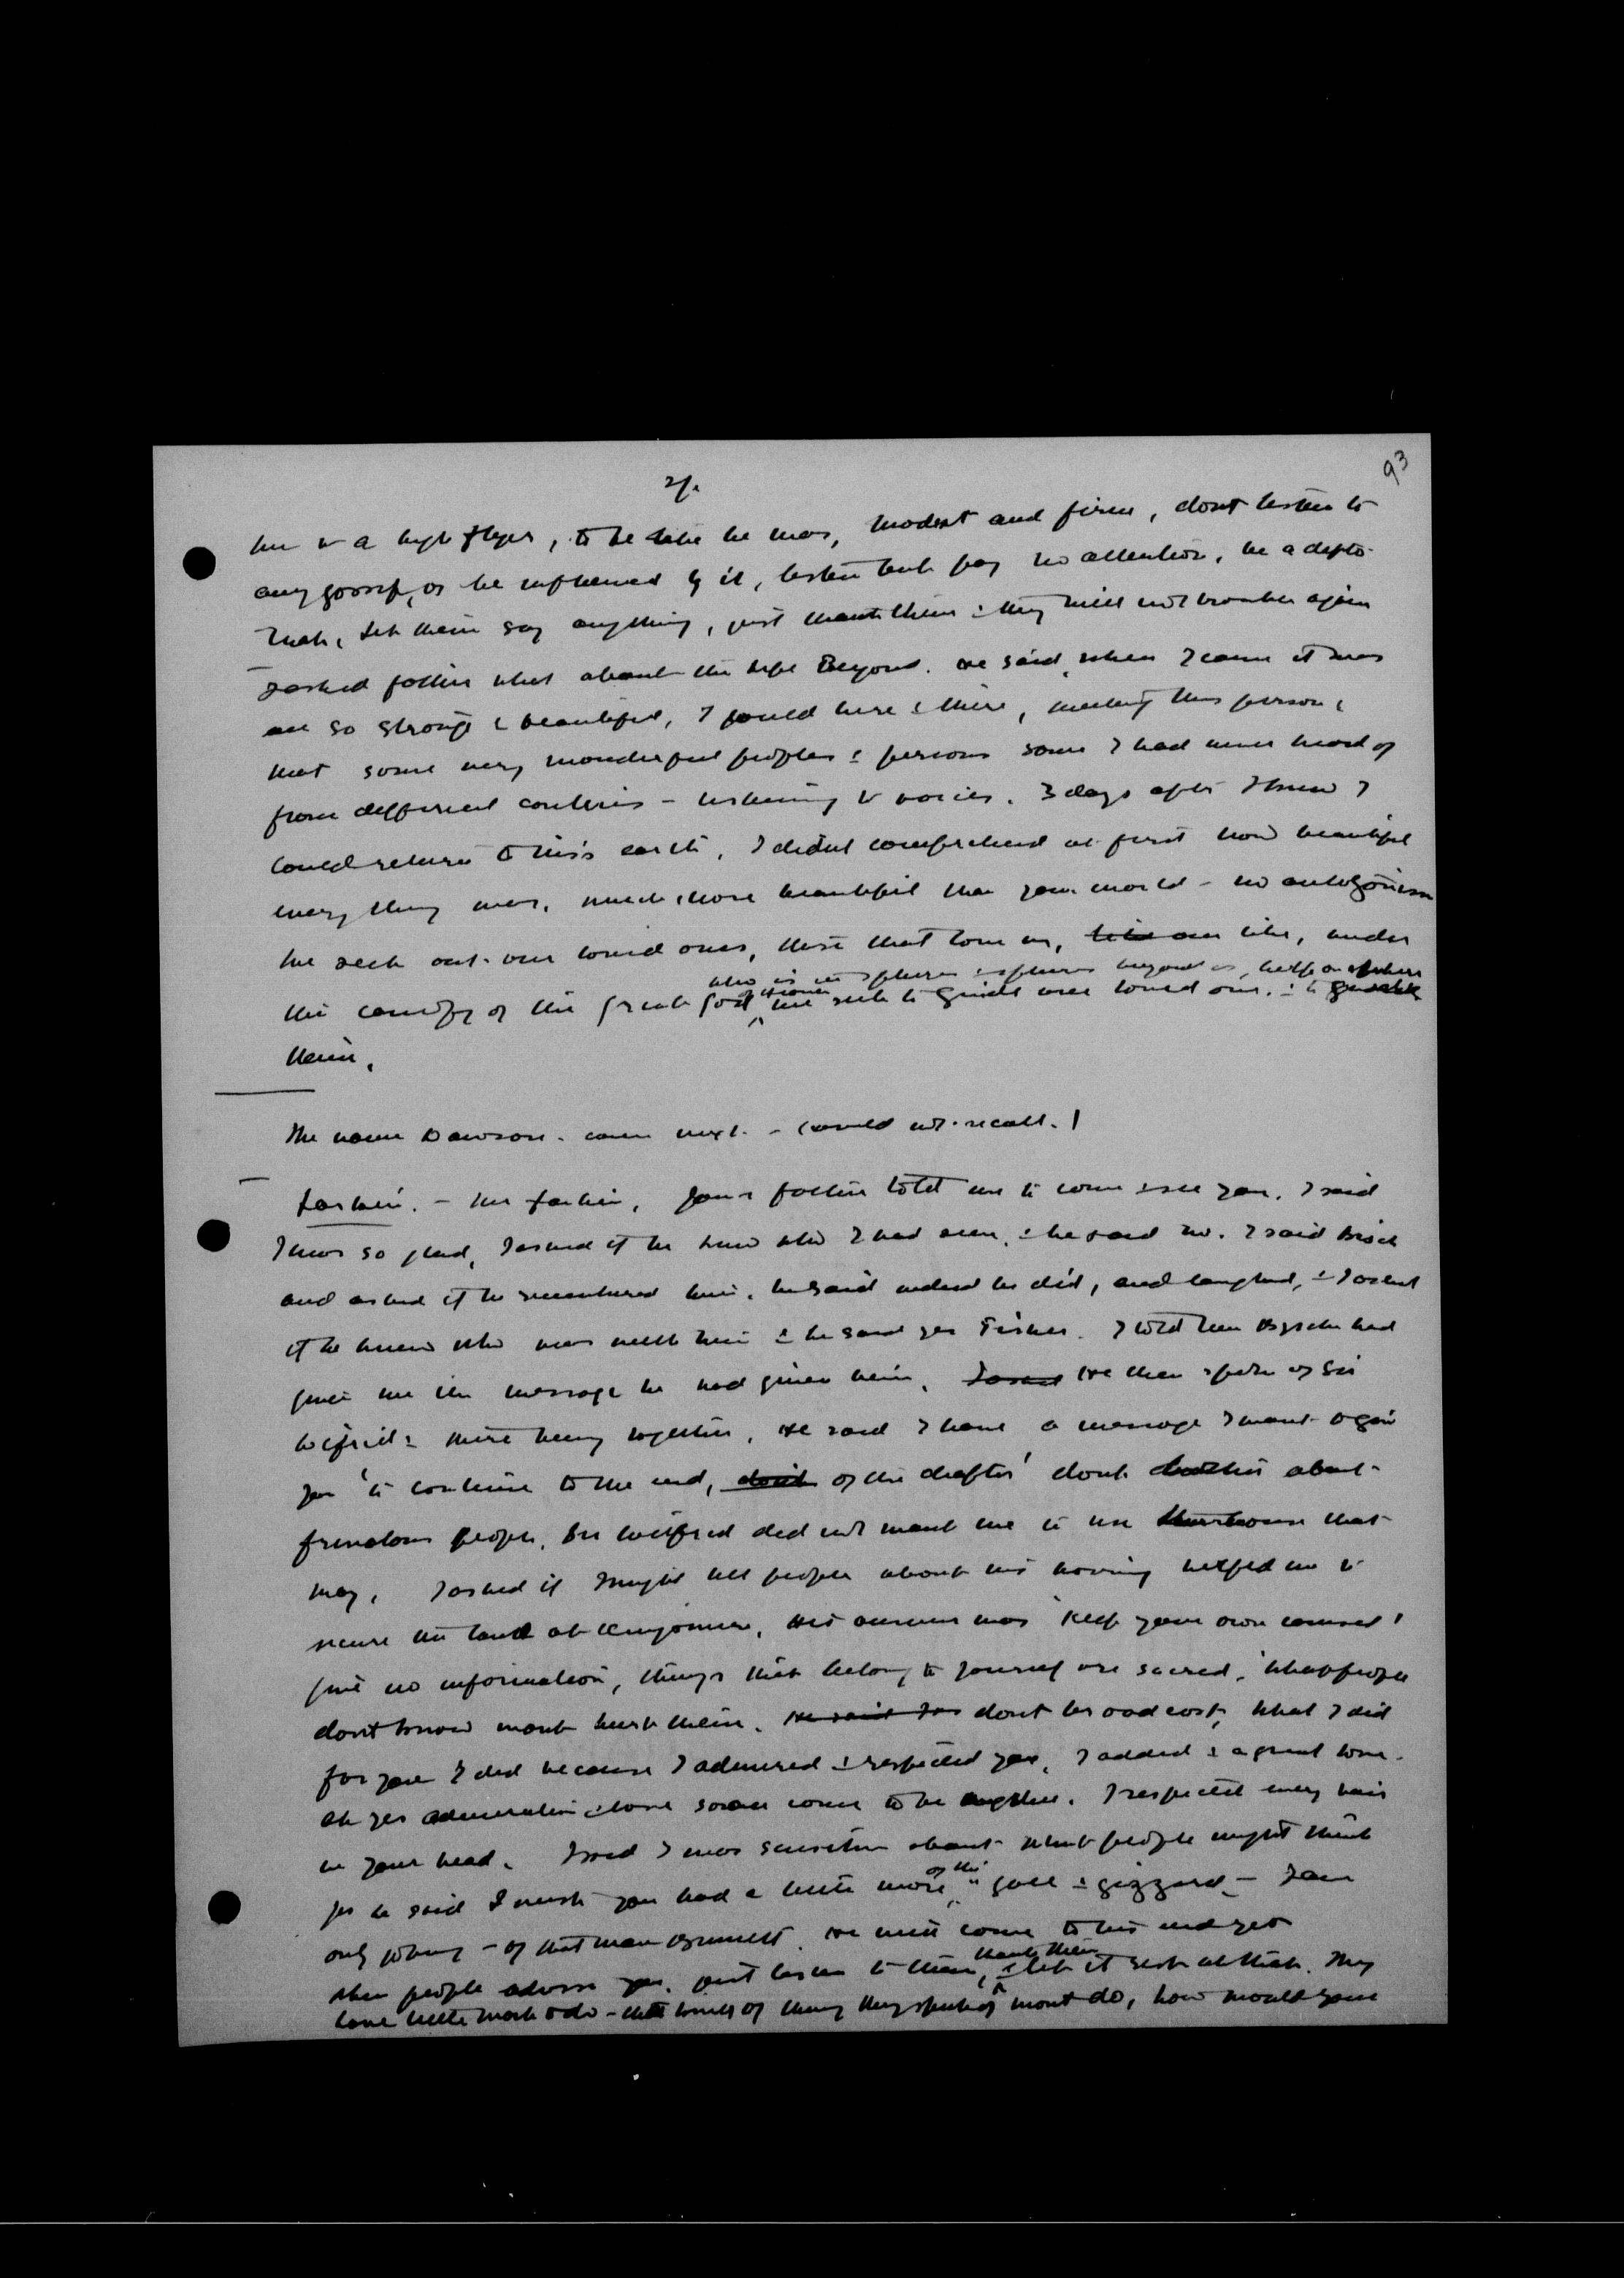 93
2/.
a high flyer, to be like he was, modest and firm, dont listen to
any gossip, or be influenced by it, listen but pay no attention, be a
let them say anything, just thank them & they will not again
I asked father what about the life Beyond. He said, when I came it was
all so strange & beautiful, I here & there, meeting this person &
that some very wonderful peoples & persons some I had never heard of
from different countries - listening to voices. 3 days after I knew I
could return to this earth. I didnt comprehend at first how beautiful
every thing was, much more beautiful than your world - no antagonism
We seek out our loved ones, those that love us, like, under
who is in spheres & spheres beyond us, help
the canopy of the great God of Heaven we seek to guide our loved ones. & to
them.
The name Dawson. came next - could not recall.!
Larkin. - Mr Larkin, your father told me to come & see you. I said
I was so glad, I asked if he knew who I had seen, & he said no. I said
and asked if he remembered him. he said indeed he did, and laughed, & I asked
if he knew who was with him & he said yes Fisher. I told him had
given me the message he had given him. He then spoke of Sir
Wilfrid & their being together, He said I have a message I want to give
you 'to continue to the end, of the chapter' dont about
frivolous people, Sir Wilfrid did not want me to use that
way. I asked if I might tell people about his having helped me to
secure the land at Kingsmere, His answer was 'Keep your own counsel'
Give no information, things that belong to yourself are sacred, what people
dont know wont hurt them. dont broadcast, what I did
for you I did because I admired & respected you, I added & a great love.
oh yes admiration & love soon come to be together. I respected every hair
in your head. I said I was sensitive about what people might think
yes he said I wish you had a little more of the "gall & gizzard - I am
only joking - of that man Bennett. He will come to his end yet
when people advise you, just listen to them, thank them & let it rest at that. They
have little work to do - the kinds of thing they speak of wont do, how would you